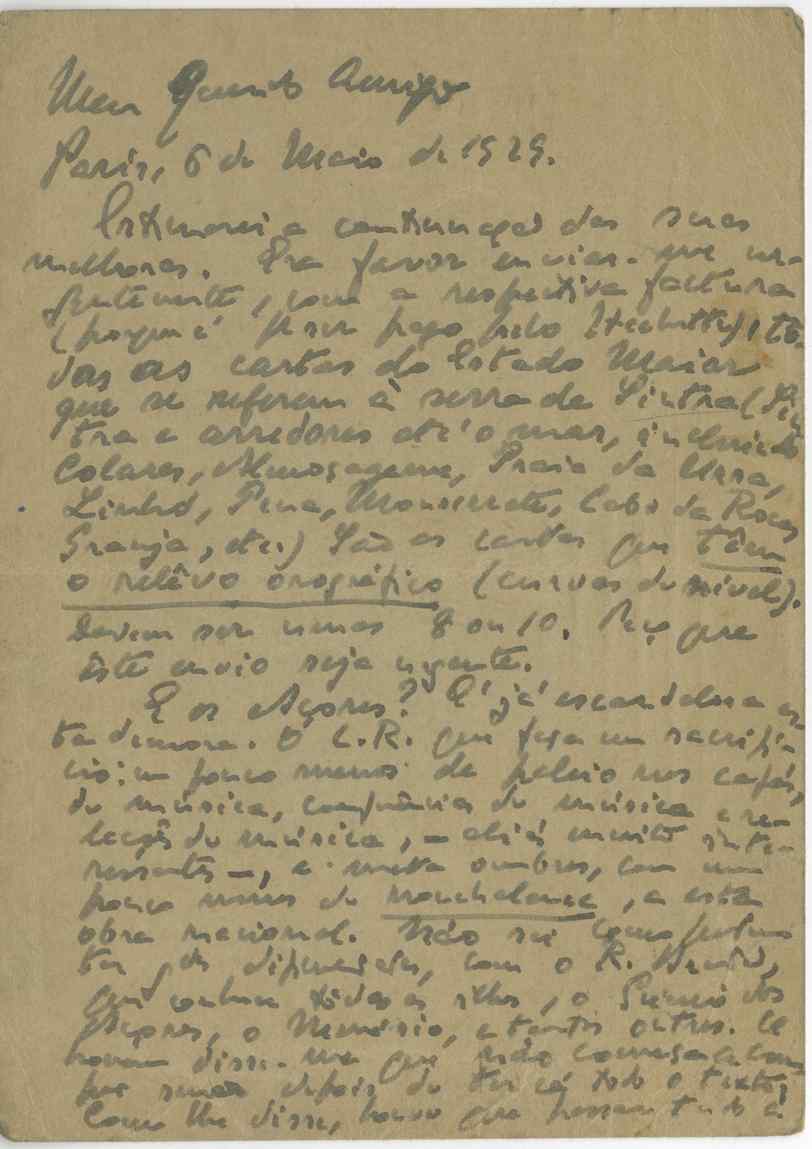 Meu Querido Amigo
Paris, 6 de Maio de 1929.
Estimarei a continuação das suas
melhoras. Era favor enviar-me ur-
gentemente, com a respectiva factura
(porque é p.ª ser pago pelo Hachette), to-
das as cartas do Estado Maior
que se referem à serra de Sintra (Sin
tra e arredores até o mar, incluindo
Colares, Almoçageme, Praia da Ursa,
Linhó, Pena, Monserrate, Cabo da Roca
Granja, etc.) São as cartas que têm
o relêvo orográfico (curvas de nível).
Devem ser umas 8 ou 10. Peço que
êste envio seja urgente.
E os Açores? É já escandalosa es-
ta demora. O L.R. que faça um sacrifí-
cio: um pouco menos de paleio nos cafés,
de música, de música e re-
de música, – aliás muito inte-
ressantes –, e meta ombros, com um
pouco menos de nonchalance, a esta
obra nacional. Não sei como
ter, com o R. Brandão,
que todas as ilhas, o Grémio dos
Açores, o Nemésio, e tantos outros.
disse-me que não começa a com-
por senão depois de ter cá todo o texto;
Como lhe disse, tudo a